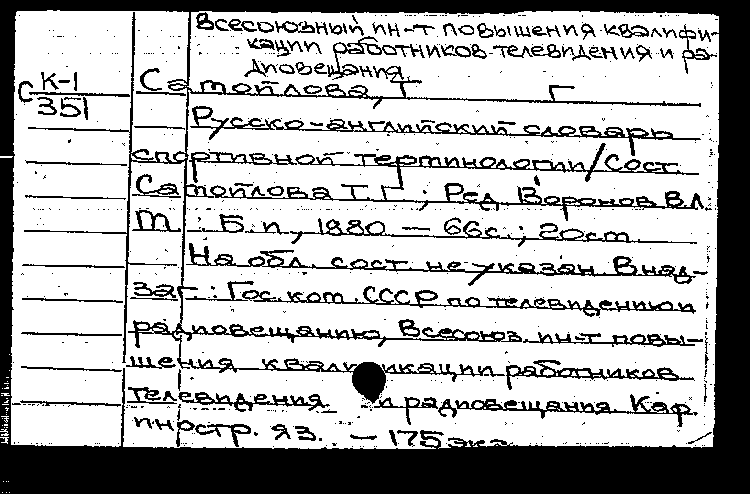 Всесоюзный ин-т повышения квалифи-
кации работников телевидения и ра-
диовещания
С К-1
351
Самойлова, Т Г
Русско-английский словарь
спортивной терминологии/Сост.
Самойлова Т.Г.; Ред. Воронов В.Л.
М.: Б.и., 1980 — 66с.; 20см
На обл. сост. не указан. В над-
заг.: Гос. ком. СССР по телевидению и
радиовещанию, Всесоюз. ин-т повы-
шения квалификации работников
телевидения и радиовещания. Каф.
иностр. яз. — 175 экз